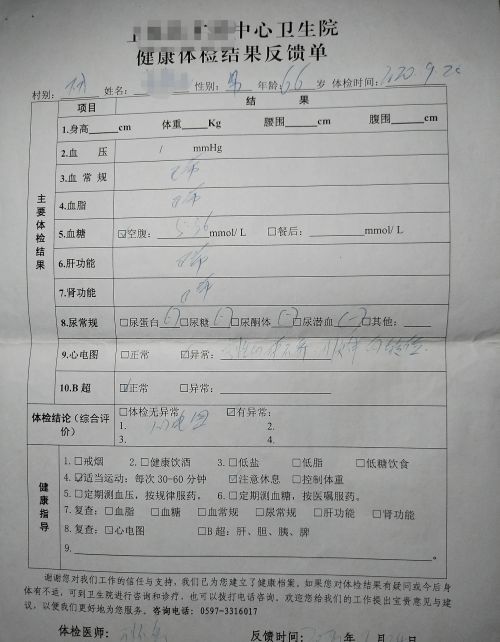 中心卫生院
健康体检结果反馈单
村别: 姓名: 性别:男 年龄:66 岁 体检时间:2020.9.2
项目 结 果
主要体检结果
1.身高 cm 体重 Kg 腰围 cm 腹围 cm
2.血 压 / mmHg
3.血 常 规
4.血脂
5.血糖 ☑空腹: 5.56 mmol/ L □餐后: mmol/ L
6.肝功能
7.肾功能
8.尿常规 □尿蛋白(-) □尿糖(-) □尿酮体(-) □尿潜血(-) □其他:
9.心电图 □正常 ☑异常:
10.B 超 ☑正常 □异常:
体检结论(综合评价) □体检无异常 ☑有异常:
1.心电图 2.
3. 4.
健康指导
1.□戒烟 2.□健康饮酒 3.□低盐 □低脂 □低糖饮食
4.☑适当运动:每次 30-60 分钟 ☑注意休息 □控制体重
5.□定期测血压,按规律服药。 6.□定期测血糖,按医嘱服药。
7.复查:□血脂 □血糖 □血常规 □尿常规 □肝功能 □肾功能
8.复查:☑心电图 □B 超:肝、胆、胰、脾
9. 。
谢谢您对我们工作的信任与支持,我们已为您建立了健康档案。如果您对体检结果有疑问或今后身
体有不适,可到卫生院进行咨询和诊疗,也可以拨打电话咨询。欢迎您给我们的工作提出宝贵意见与建
议,以便我们更好地为您服务。咨询电话:0597-3316017
体检医师: 反馈时间: 年 月 日